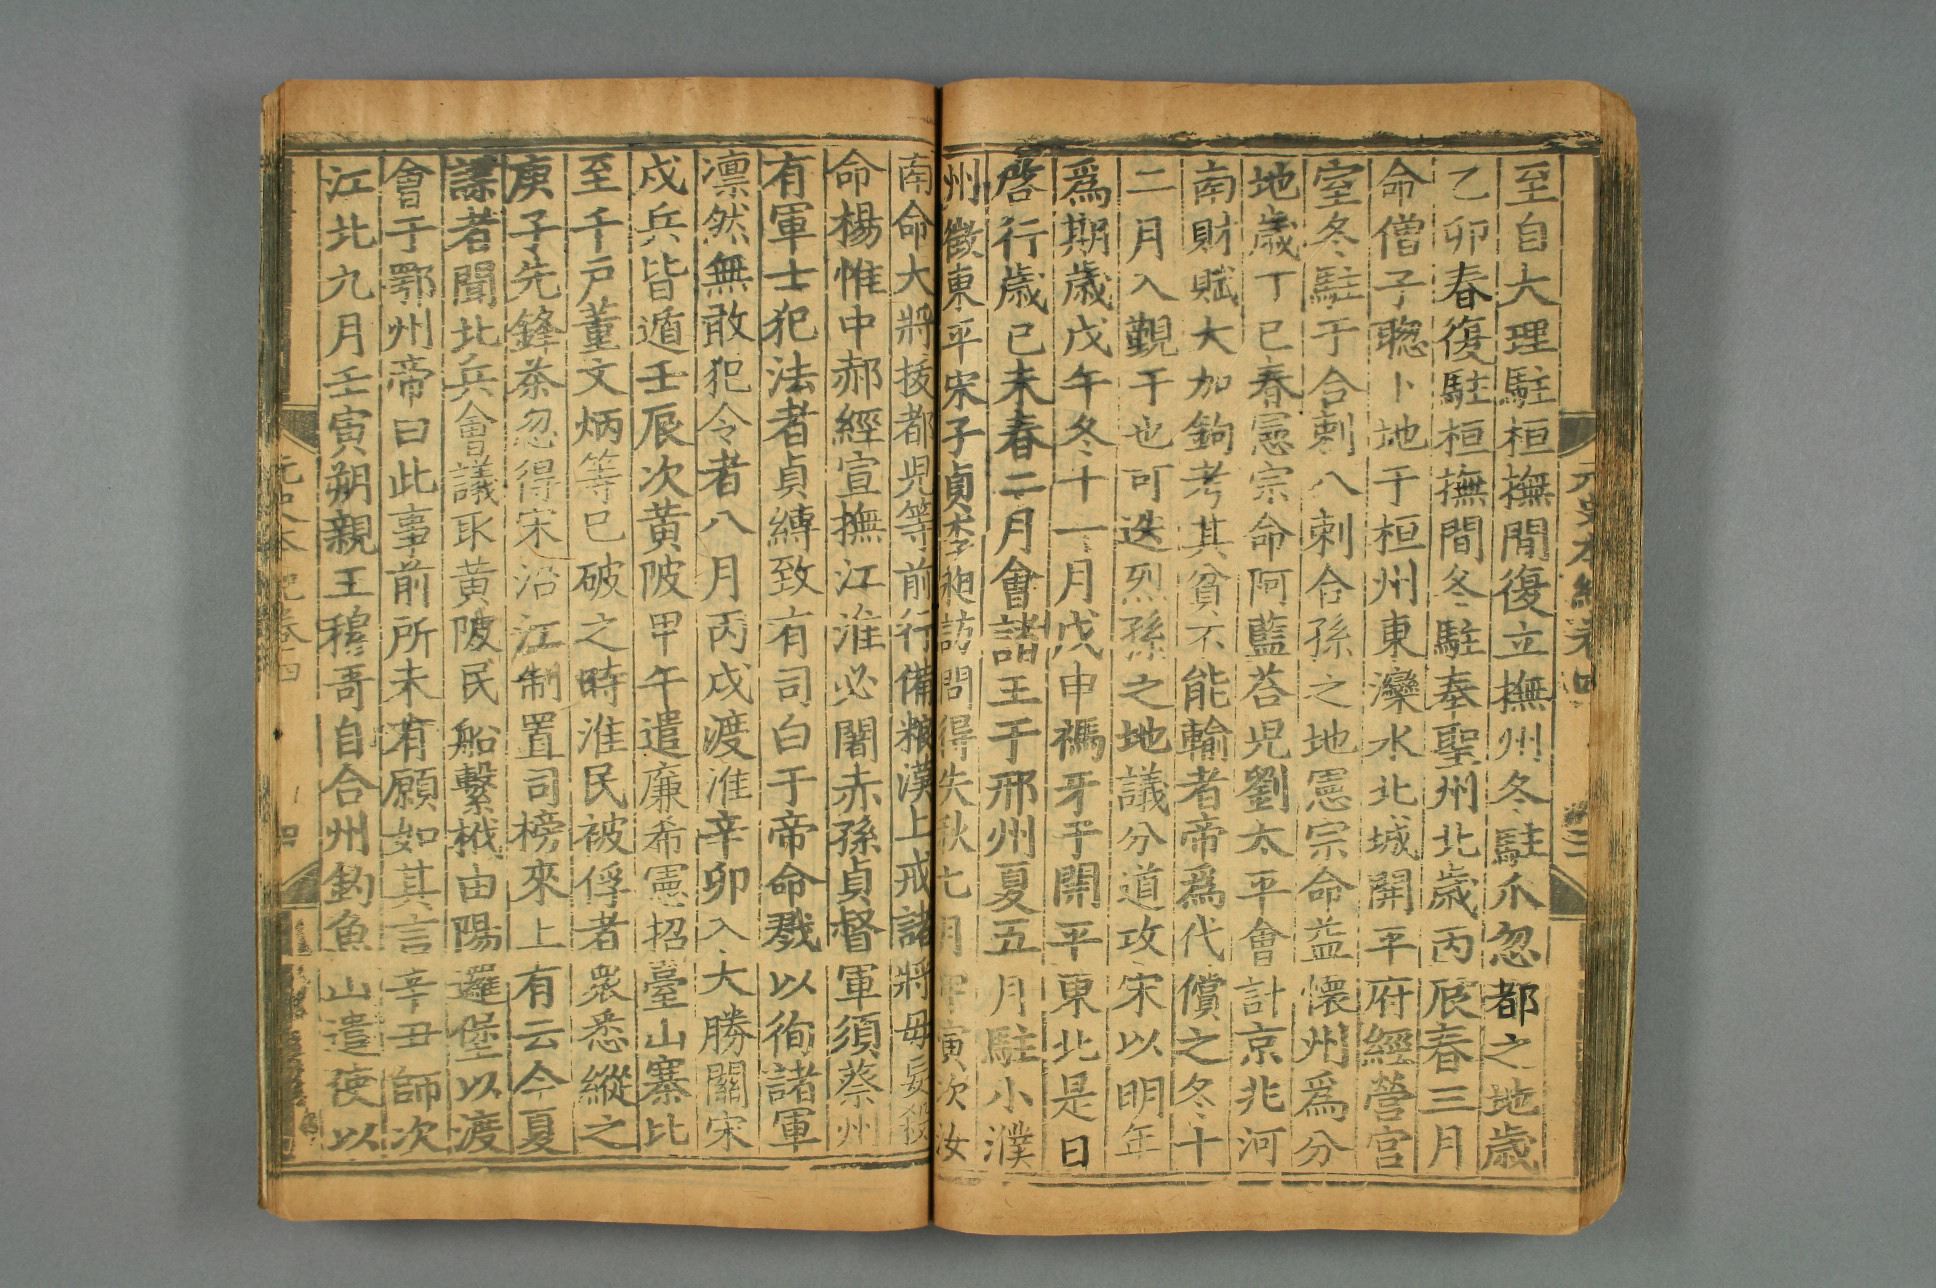 元史本紀卷四
三
至自大理駐桓撫間復立撫州冬駐爪忽都之地歲
乙卯春復駐桓撫間冬駐奉聖州北歲丙辰春三月
命僧子聰卜地于桓州東灤水北城開平府經營宮
室冬駐于合剌八剌合孫之地憲宗命益懷州爲分
地歲丁巳春憲宗命阿藍荅児劉太平會計京兆河
南財賦大加鉤考其貧不能輸者帝爲代償之冬十
二月入覲于也可迭烈孫之地議分道攻宋以明年
爲期歲戊午冬十一月戊申禡牙于開平東北是日
啓行歲已未春二月會諸王于邢州夏五月駐小濮
州徵東平宋子貞李昶訪問得失秋七月甲寅次汝
南命大將拔都児等前行備粮漢上戒諸將毋妄殺
命楊惟中郝經宣撫江淮必闍赤孫貞督軍須蔡州
有軍士犯法者貞縛致有司白于帝命戮以徇諸軍
凛然無敢犯令者八月丙戌渡淮辛卯入大勝關宋
戍兵皆遁壬辰次黃陂甲午遣廉希憲招臺山寨比
至千戶董文炳等已破之時淮民被俘者衆悉縱之
庚子先鋒茶忽得宋沿江制置司榜來上有云今夏
諜者聞北兵會議取黃陂民船繫栰由陽邏堡以渡
會于鄂州帝曰此事前所未有願如其言辛丑師次
江北九月壬寅朔親王穆哥自合州釣魚山遣使以
元史本紀卷四
四